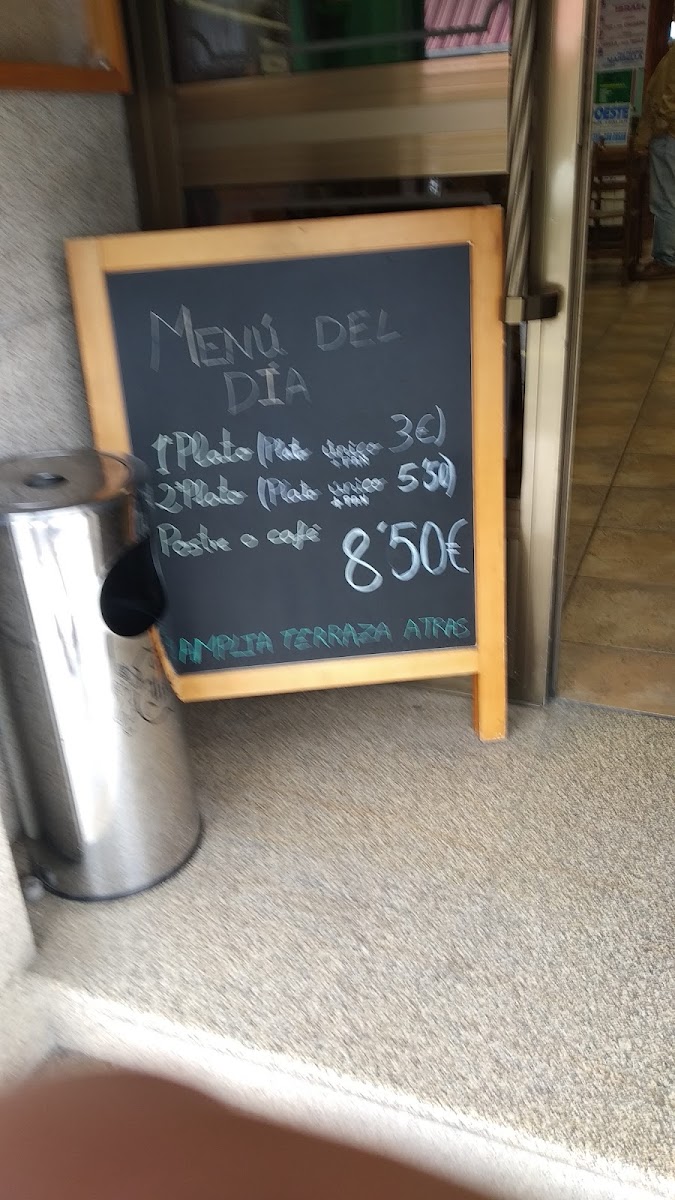 MENÚ DEL
DÍA
1º Plato (Plato único 3€)
+ PAN
2º Plato (Plato único 5'50)
+ PAN
Postre o café
8'50€
AMPLIA TERRAZA ATRAS
OESTE